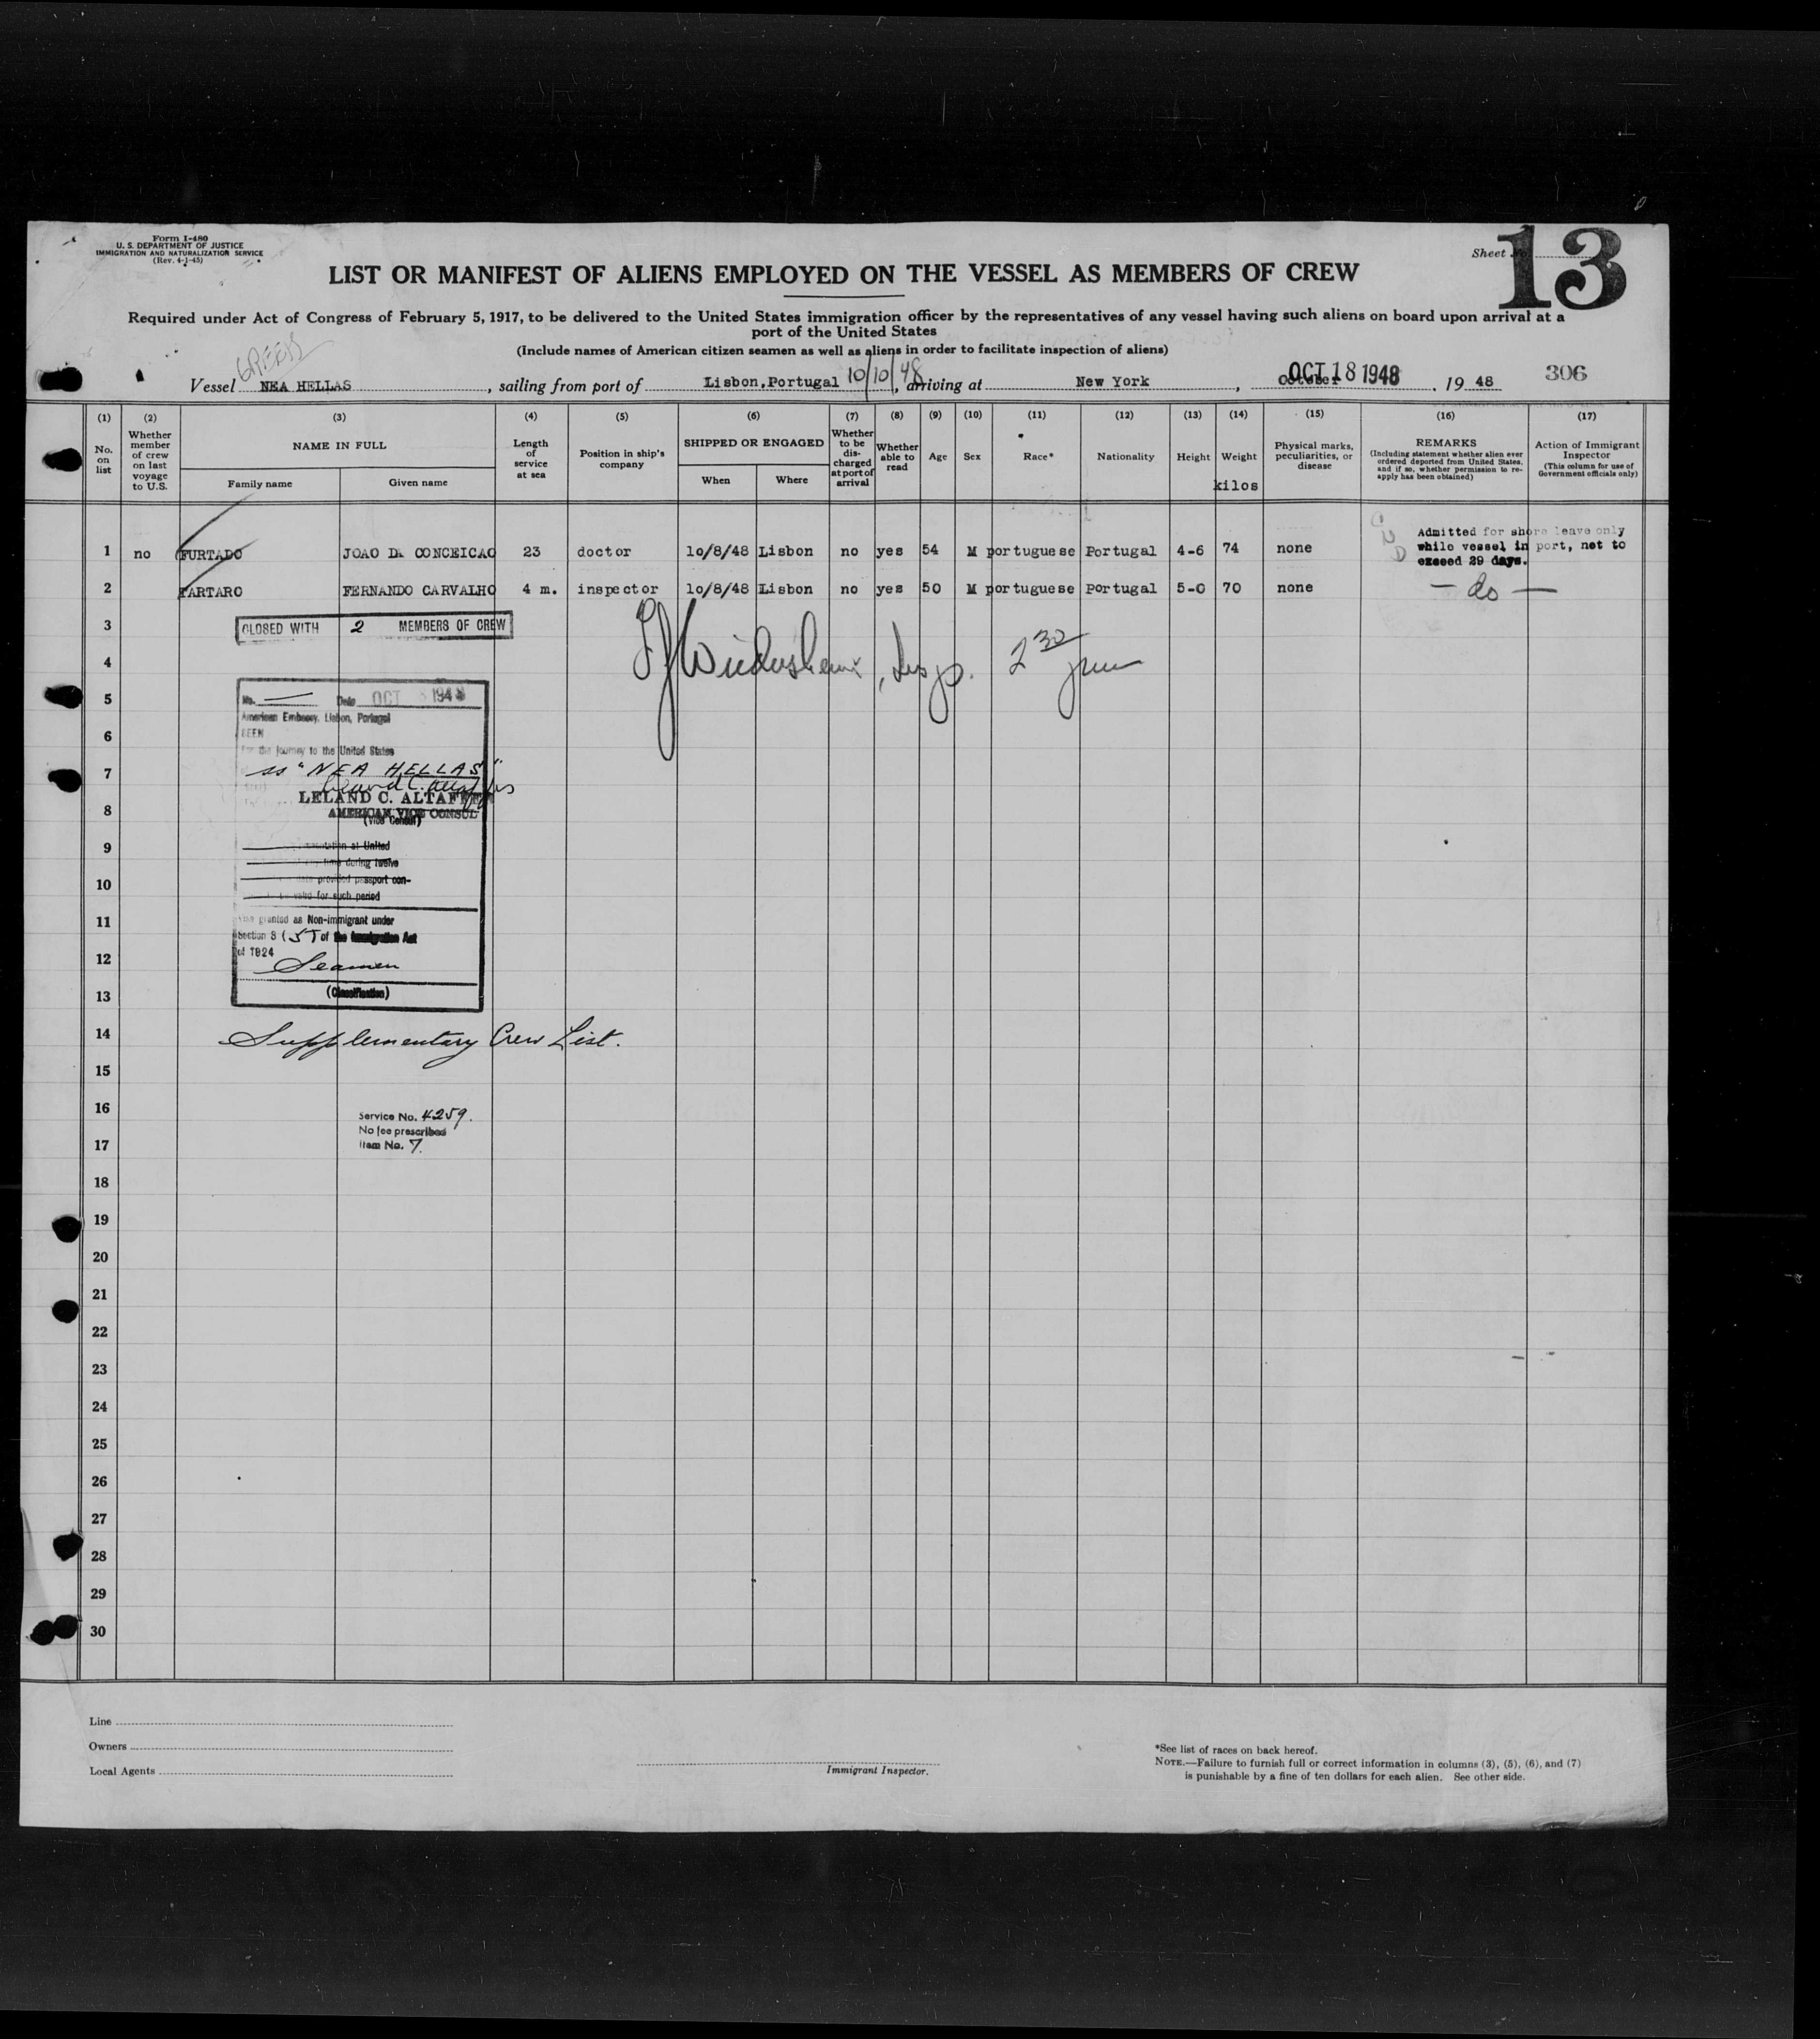 Form I-480
U. S. DEPARTMENT OF JUSTICE
IMMIGRATION AND NATURALIZATION SERVICE
(Rev. 4-1-45)
Sheet No.
13
LIST OR MANIFEST OF ALIENS EMPLOYED ON THE VESSEL AS MEMBERS OF CREW
Required under Act of Congress of February 5, 1917, to be delivered to the United States immigration officer by the representatives of any vessel having such aliens on board upon arrival at a
port of the United States
(Include names of American citizen seamen as well as aliens in order to facilitate inspection of aliens)
Vessel NEA HELLAS, sailing from port of Lisbon, Portugal 10/10/48, arriving at New York, October OCT 18 1948, 19 48 306
(1) (2) (3) (4) (5) (6) (7) (8) (9) (10) (11) (12) (13) (14) (15) (16) (17)
No. on list
Whether member of crew on last voyage to U.S.
NAME IN FULL
Family name
Given name
Length of service at sea
Position in ship's company
SHIPPED OR ENGAGED
When
Where
Whether to be discharged at port of arrival
Whether able to read
Age
Sex
Race*
Nationality
Height
Weight
kilos
Physical marks, peculiarities, or disease
REMARKS
(Including statement whether alien ever ordered deported from United States, and if so, whether permission to reapply has been obtained)
Action of Immigrant Inspector
(This column for use of Government officials only)
1 no FURTADO JOAO DA CONCEICAO 23 doctor 10/8/48 Lisbon no yes 54 M portuguese Portugal 4-6 74 none
Admitted for shore leave only
while vessel in port, not to
exceed 29 days.
2 TARTARO FERNANDO CARVALHO 4 m. inspector 10/8/48 Lisbon no yes 50 M portuguese Portugal 5-0 70 none — do —
3
CLOSED WITH 2 MEMBERS OF CREW
4
5
No. Date OCT 1948
American Embassy, Lisbon, Portugal
SEEN
6
For the journey to the United States
7
ss "NEA HELLAS"
LELAND C. ALTAFFER
8
AMERICAN VICE CONSUL
(Vice Consul)
9
at United
time during twelve
10
date provided passport con-
valid for such period
11
Visa granted as Non-immigrant under
Section 3 (5) of the Immigration Act
of 1924
12
Seamen
13
(Classification)
14
Supplementary Crew List.
15
16
Service No. 4259.
No fee prescribed
17
Item No. 7.
18
19
20
21
22
23
24
25
26
27
28
29
30
Line
Owners
Local Agents
Immigrant Inspector.
*See list of races on back hereof.
NOTE.—Failure to furnish full or correct information in columns (3), (5), (6), and (7)
is punishable by a fine of ten dollars for each alien. See other side.